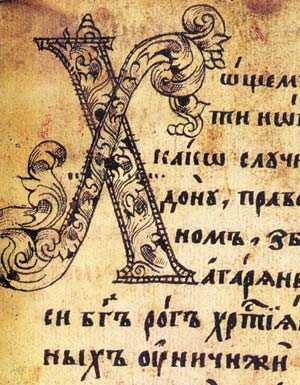 Хощем
ти нѡ
какѡ случи
дону, право
номъ, зв
агарян
си бг҃ъ рогъ хрⷭтїя
ныхъ оуничижи